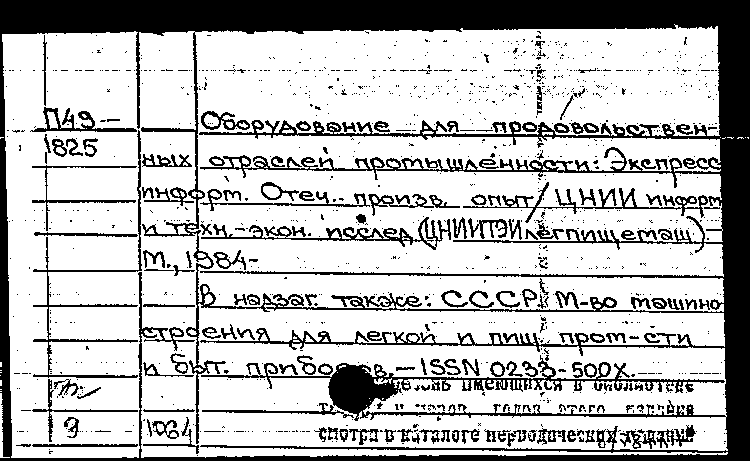 П49-
1825
Оборудование для продовольствен-
ных отраслей промышленности: Экспресс
информ. Отеч. произв. опыт / ЦНИИ информ
и техн.-экон. исслед. (ЦНИИТЭИлегпищемаш) -
М., 1984-
В надзаг. также: СССР. М-во машино
строения для легкой и пищ. пром-сти
и быт. приборов. - ISSN 0233-500X.
имеющихся в библиотеке
и номеров, годов этого издания
9 1984 смотри в каталоге периодических изданий